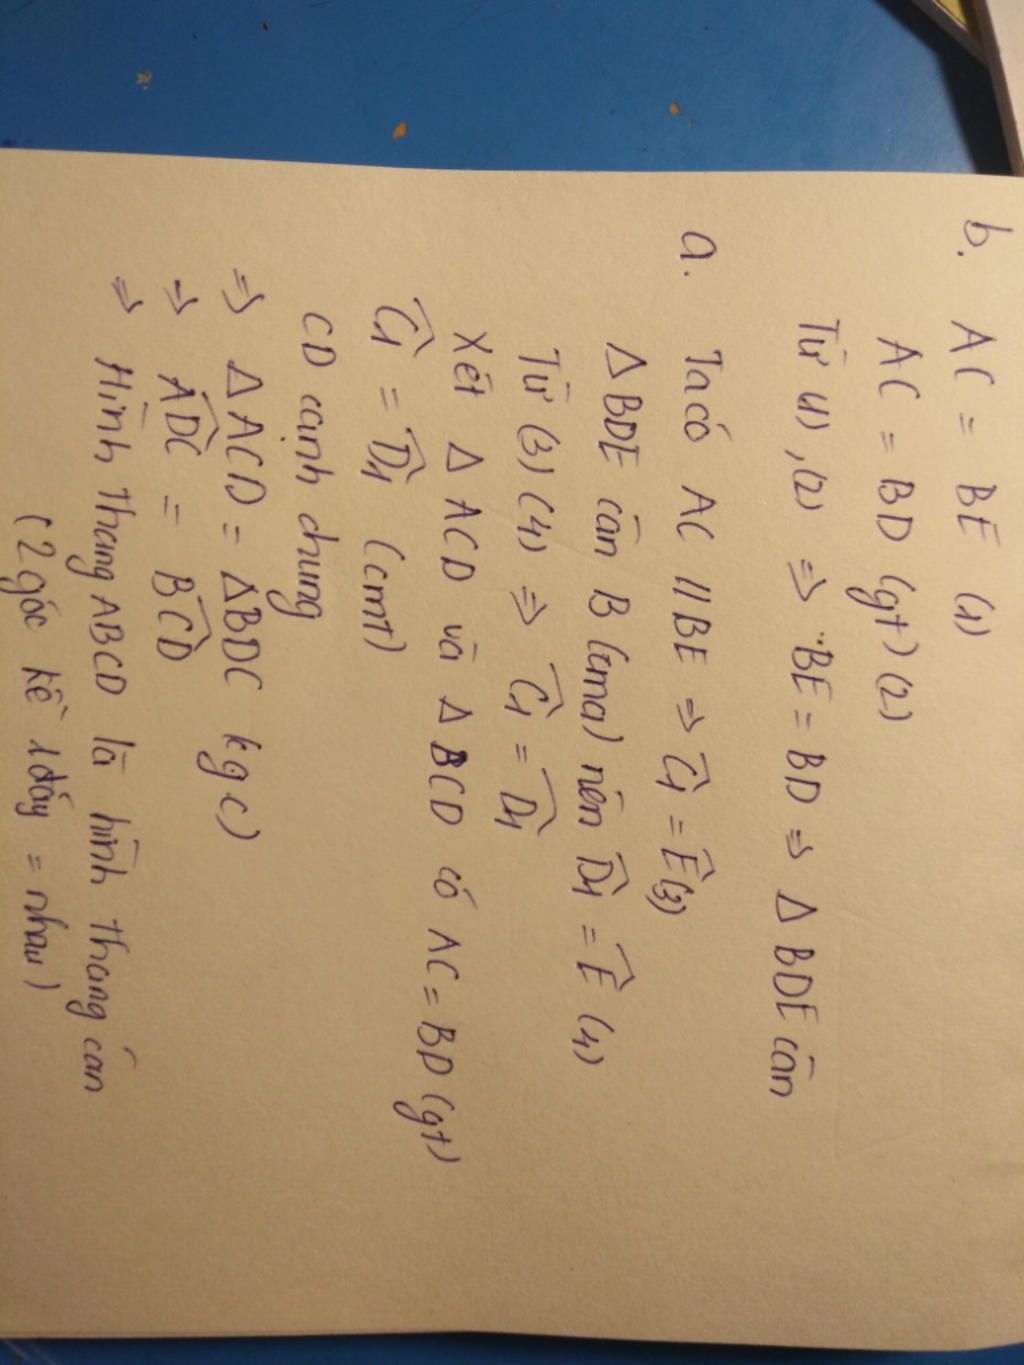 b. AC = BE (1)
AC = BD (gt) (2)
Từ (1), (2) => BE = BD => Δ BDE cân
a. Ta có AC // BE => Ĉ1 = Ê (3)
Δ BDE cân B (cma) nên D̂1 = Ê (4)
Từ (3) (4) => Ĉ1 = D̂1
Xét Δ ACD và Δ BCD có AC = BD (gt)
Ĉ1 = D̂1 (cmt)
CD cạnh chung
=> Δ ACD = Δ BDC kgc)
=> ADC = BCD
=> Hình thang ABCD là hình thang cân
(2 góc kề 1 đáy = nhau)